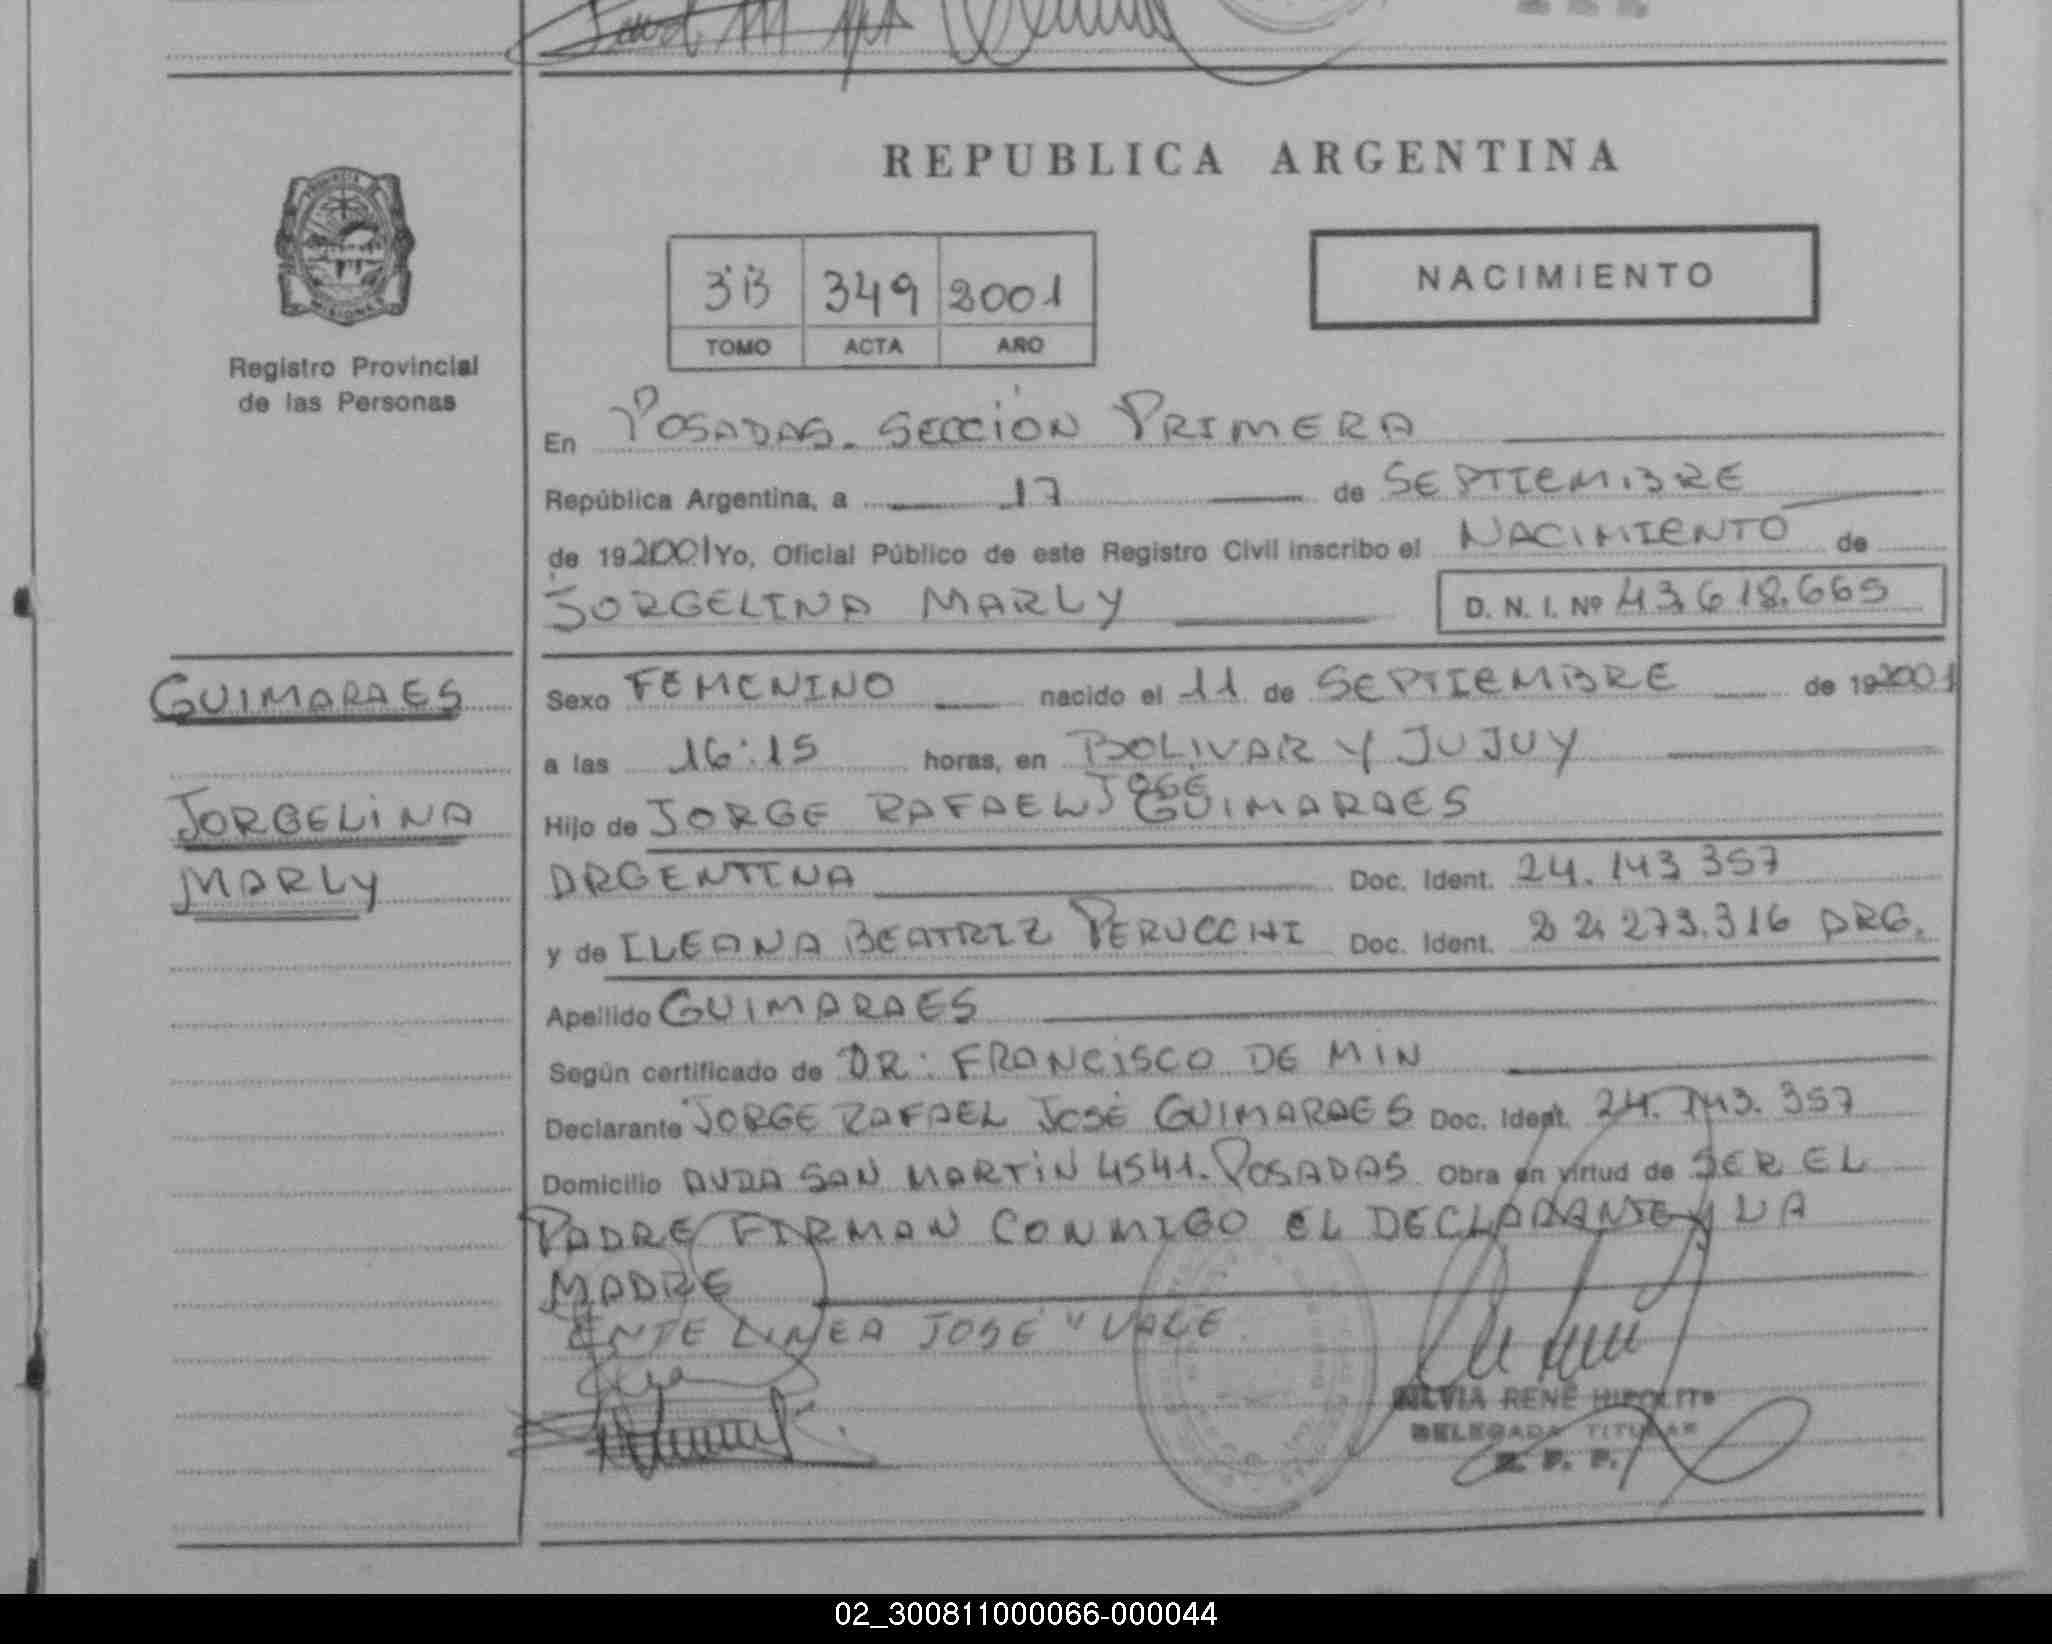 REPUBLICA ARGENTINA
PROVINCIA DE
MISIONES
Registro Provincial
de las Personas
3B 349 2001
TOMO ACTA AÑO
NACIMIENTO
En POSADAS. SECCIÓN PRIMERA
República Argentina, a 17 de SEPTIEMBRE
de 192001 Yo, Oficial Público de este Registro Civil inscribo el NACIMIENTO de
JORGELINA MARLY D. N. I. Nº 43.618.665
GUIMARAES
JORGELINA
MARLY
Sexo FEMENINO nacido el 11 de SEPTIEMBRE de 192001
a las 16:15 horas, en BOLIVAR Y JUJUY
JOSE
Hijo de JORGE RAFAEL GUIMARAES
ARGENTINA Doc. Ident. 24.143.357
y de ILEANA BEATRIZ PERUCCHI Doc. Ident. 22.273.316 ARG.
Apellido GUIMARAES
Según certificado de DR: FRANCISCO DE MIN
Declarante JORGE RAFAEL JOSÉ GUIMARAES Doc. Ident. 24.143.357
Domicilio AVDA SAN MARTÍN 4541. POSADAS Obra en virtud de SER EL
PADRE FIRMAN CONMIGO EL DECLARANTE Y LA
MADRE
ENTE LINEA JOSÉ " VALE
SILVIA RENÉ HIPOLITO
DELEGADA TITULAR
R. P. P.
02_300811000066-000044